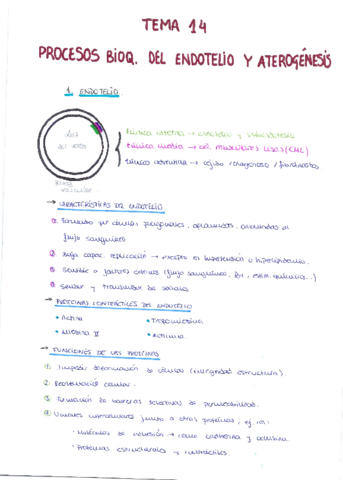 TEMA 14
PROCESOS BIOQ. DEL ENDOTELIO Y ATEROGÉNESIS
1. ENDOTELIO
Luz
del vaso
Túnica íntima → endotelio y
Túnica media → cél. musculares lisas (CML)
Túnica adventicia → tejido conagenoso / fibroblastos
vascular
→ CARACTERÍSTICAS DEL ENDOTELIO
① Formado por células poligonales, aplanadas, orientadas al
flujo sanguíneo
② Baja capac. replicación → excepto en hipertensión o hiperlipidemia.
③ Sensible a factores externos (flujo sanguíneo, pH, estim. químicos...)
④ Sensor y transmisor de señales
→ PROTEÍNAS CONTRÁCTILES DEL ENDOTELIO
• Actina
• Tropomiosina
• Miosina II
• Actinina
→ FUNCIONES DE LAS PROTEÍNAS
① Impedir deformación de células (integridad estructural).
② celular.
③ Formación de barreras selectivas de permeabilidad.
④ Uniones intercelulares junto a otras proteínas, ej.
• Moléculas de cohesión → como cadherina y
• Proteínas estructurales y contráctiles.